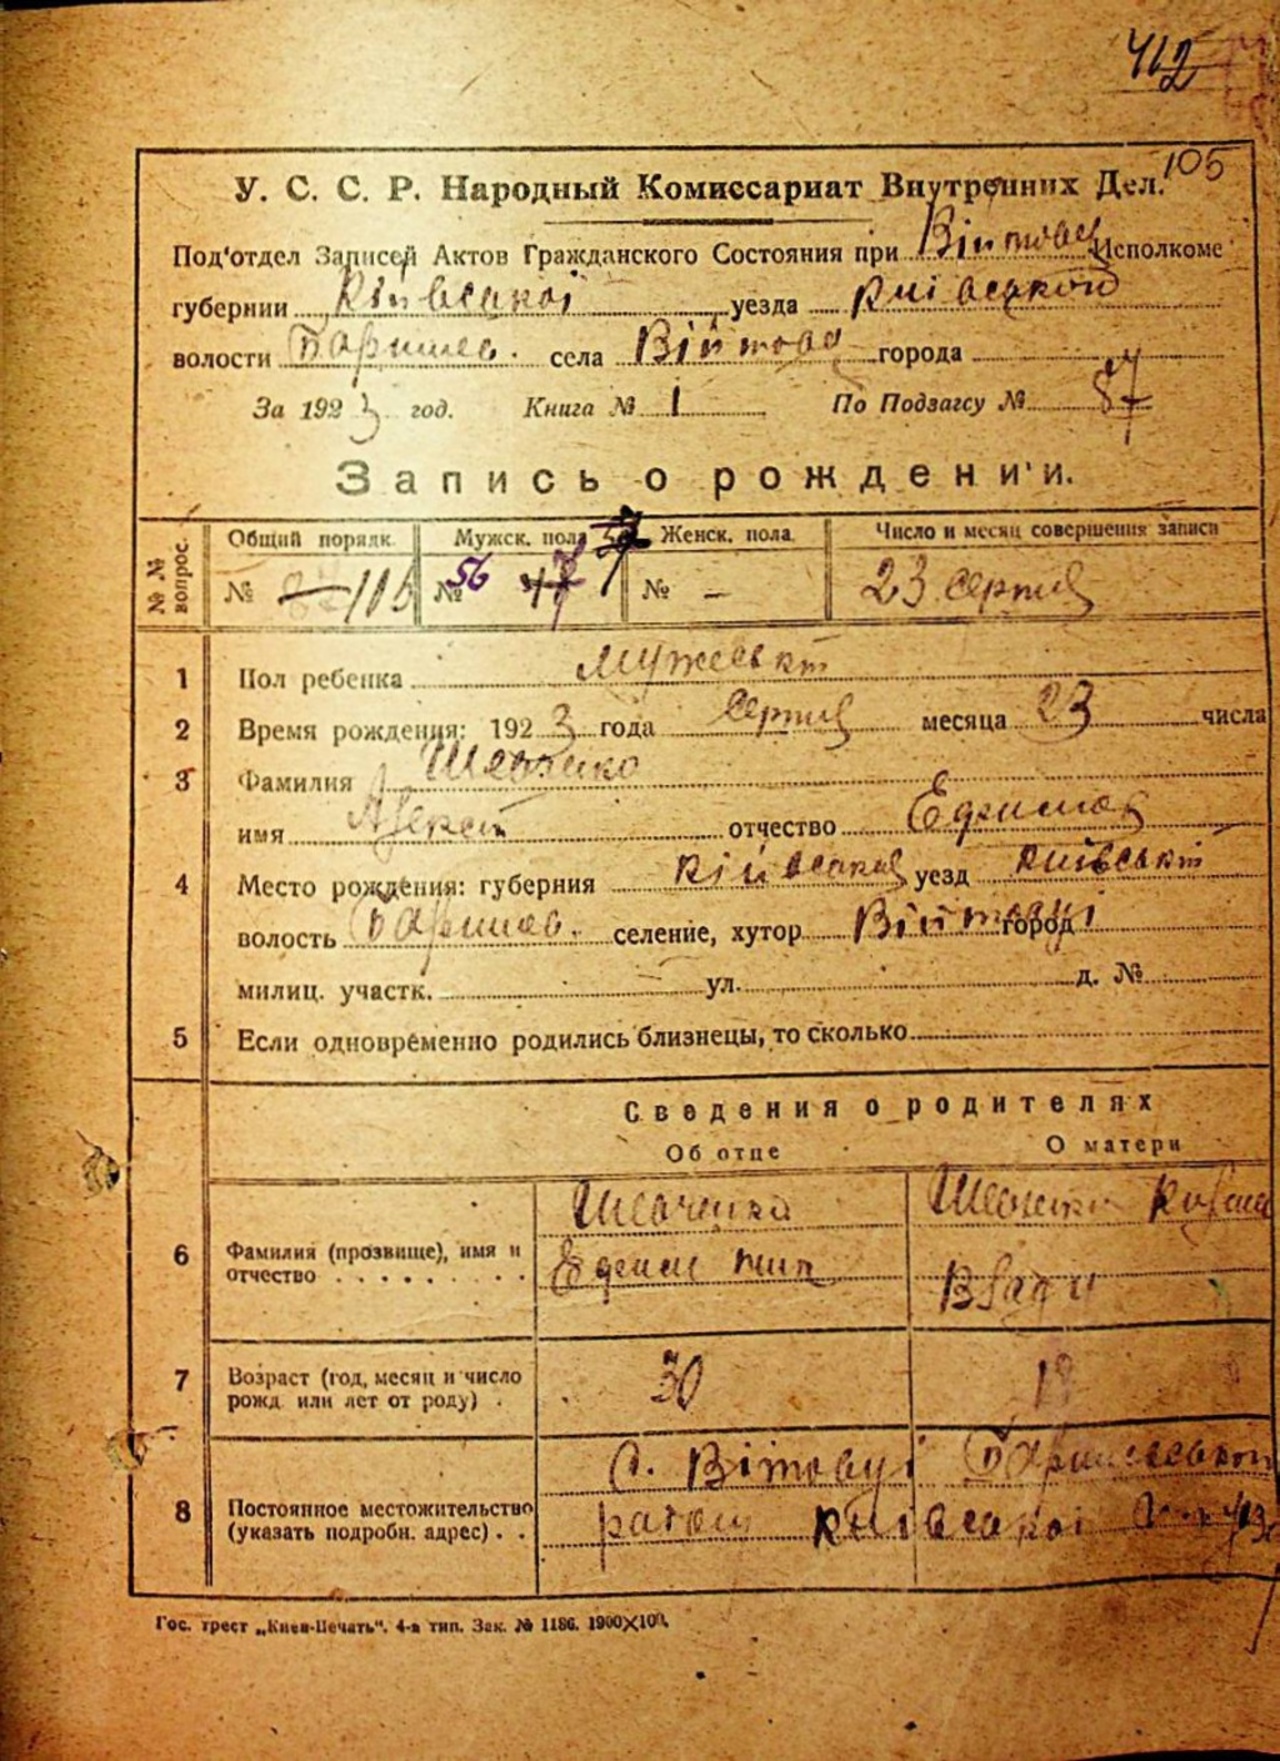 412
105
У. С. С. Р. Народный Комиссариат Внутренних Дел.
Под'отдел Записей Актов Гражданского Состояния при Исполкоме
губернии Київської уезда Київського
волости Баришев. села Війтовц города
За 1923 год. Книга № 1 По Подзагсу № 87
Запись о рождении.
№ № вопрос. Общий порядк. Мужск. пола Женск. пола. Число и месяц совершения записи
№ 115 № 56 № — 23 серпня
1 Пол ребенка Мужеськ
2 Время рождения: 1923 года Серпня месяца 23 числа
3 Фамилия Шевченко
имя Алексей отчество Ефимов
4 Место рождения: губерния Київська уезд Київськ
волость Баришев. селение, хутор Війтовці город
милиц. участк. ул. д. №
5 Если одновременно родились близнецы, то сколько
Сведения о родителях
Об отце О матери
6 Фамилия (прозвище), имя и отчество
Шевченко
Шевченко
Ефим
7 Возраст (год, месяц и число рожд или лет от роду)
30
8 Постоянное местожительство (указать подробн. адрес)
с. Війтовці Баришевськой
району Київської
Гос. трест „Киев-Печать“. 4-я тип. Зак. № 1186. 1900×100.